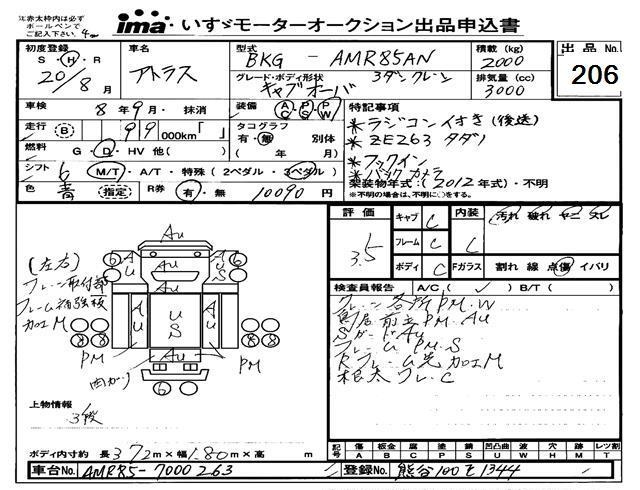 注赤太枠内は必ず
ボールペンで
ご記入下さい。
ima いすゞモーターオークション出品申込書
初度登録
S・H・R
20/8月
車名
アトラス
型式
BKG - AMR85AN
グレード・ボディ形状
3ダンクレーン
キャブオーバ
積載(kg)
2000
排気量(cc)
3000
出品No.
206
車検 8年9月・抹消
装備 A/C P/S P/W
走行 B 99 000km「 」
タコグラフ
有・無 別体
( 年 月)
燃料 G・D・HV 他( )
シフト 6 M/T・A/T・特殊(2ペダル・3ペダル)
色 青 指定 R券 有・無 10090円
特記事項
*ラジコンイオキ(後送)
*ZE263 タダノ
*フックイン
*バックカメラ
架装物年式:(2012年式)・不明
※不明の場合は、不明に○をする。
評価
3.5
キャブ C
フレーム C
ボディ C
内装 C
Fガラス
汚れ 破れ ヤニ スレ
割れ 線 点傷 イバリ
検査員報告 A/C( ✓ ) B/T( )
クレーン各所PM.W
鳥居前立PM.Au
SガードAu
フレームPM.S
Rフレーム先加工M
根太フレ.C
(左右)
クレーン取付部
フレーム補強板
加工M
Au
Au
Au
Au
US
Au
Au
US
Au
6
6
8 8
8 8
PM
PM
凹ガリ
6
上物情報
3段
ボディ内寸約 長372m×幅1.80m×高 m
記号 A B C P S U W H M T
傷 板金 腐 塗 錆 凹凸曲 波 穴 跡 レツ割
車台No. AMR85-7000263
登録No. 熊谷100せ1344